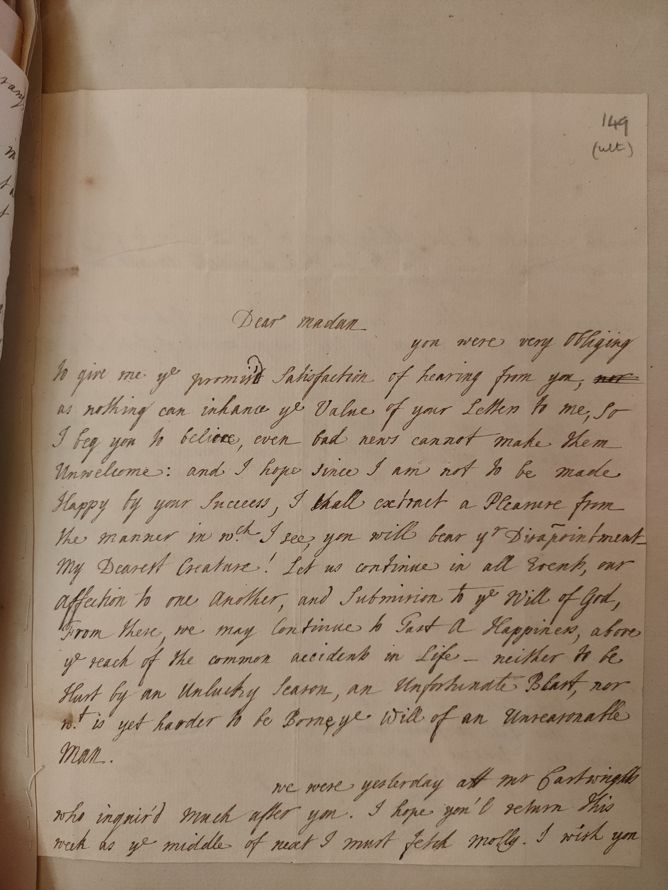 149
(ult)
Dear madan
you were very Obliging
to give me ye promis'd Satisfaction of hearing from you, nor
as nothing can inhance ye Value of your Letters to me, So
I beg you to believe, even bad news cannot make them
Unwelcome: and I hope since I am not to be made
Happy by your Success, I shall extract a Pleasure from
the manner in wch I see, you will bear yr Disapointment
My Dearest Creature! Let us continue in all Events, our
Affection to one Another, and Submission to ye Will of God,
From these, we may Continue to Tast A Happiness, above
ye reach of the common accidents in Life – neither to be
Hurt by an Unlucky Season, an Unfortunate Blast, nor
wt is yet harder to be Borne, ye Will of an Unreasonable
Man.
we were yesterday att mr Cartwrights
who inquir'd much after you. I hope you'l return this
week as ye middle of next I must fetch molly. I wish you